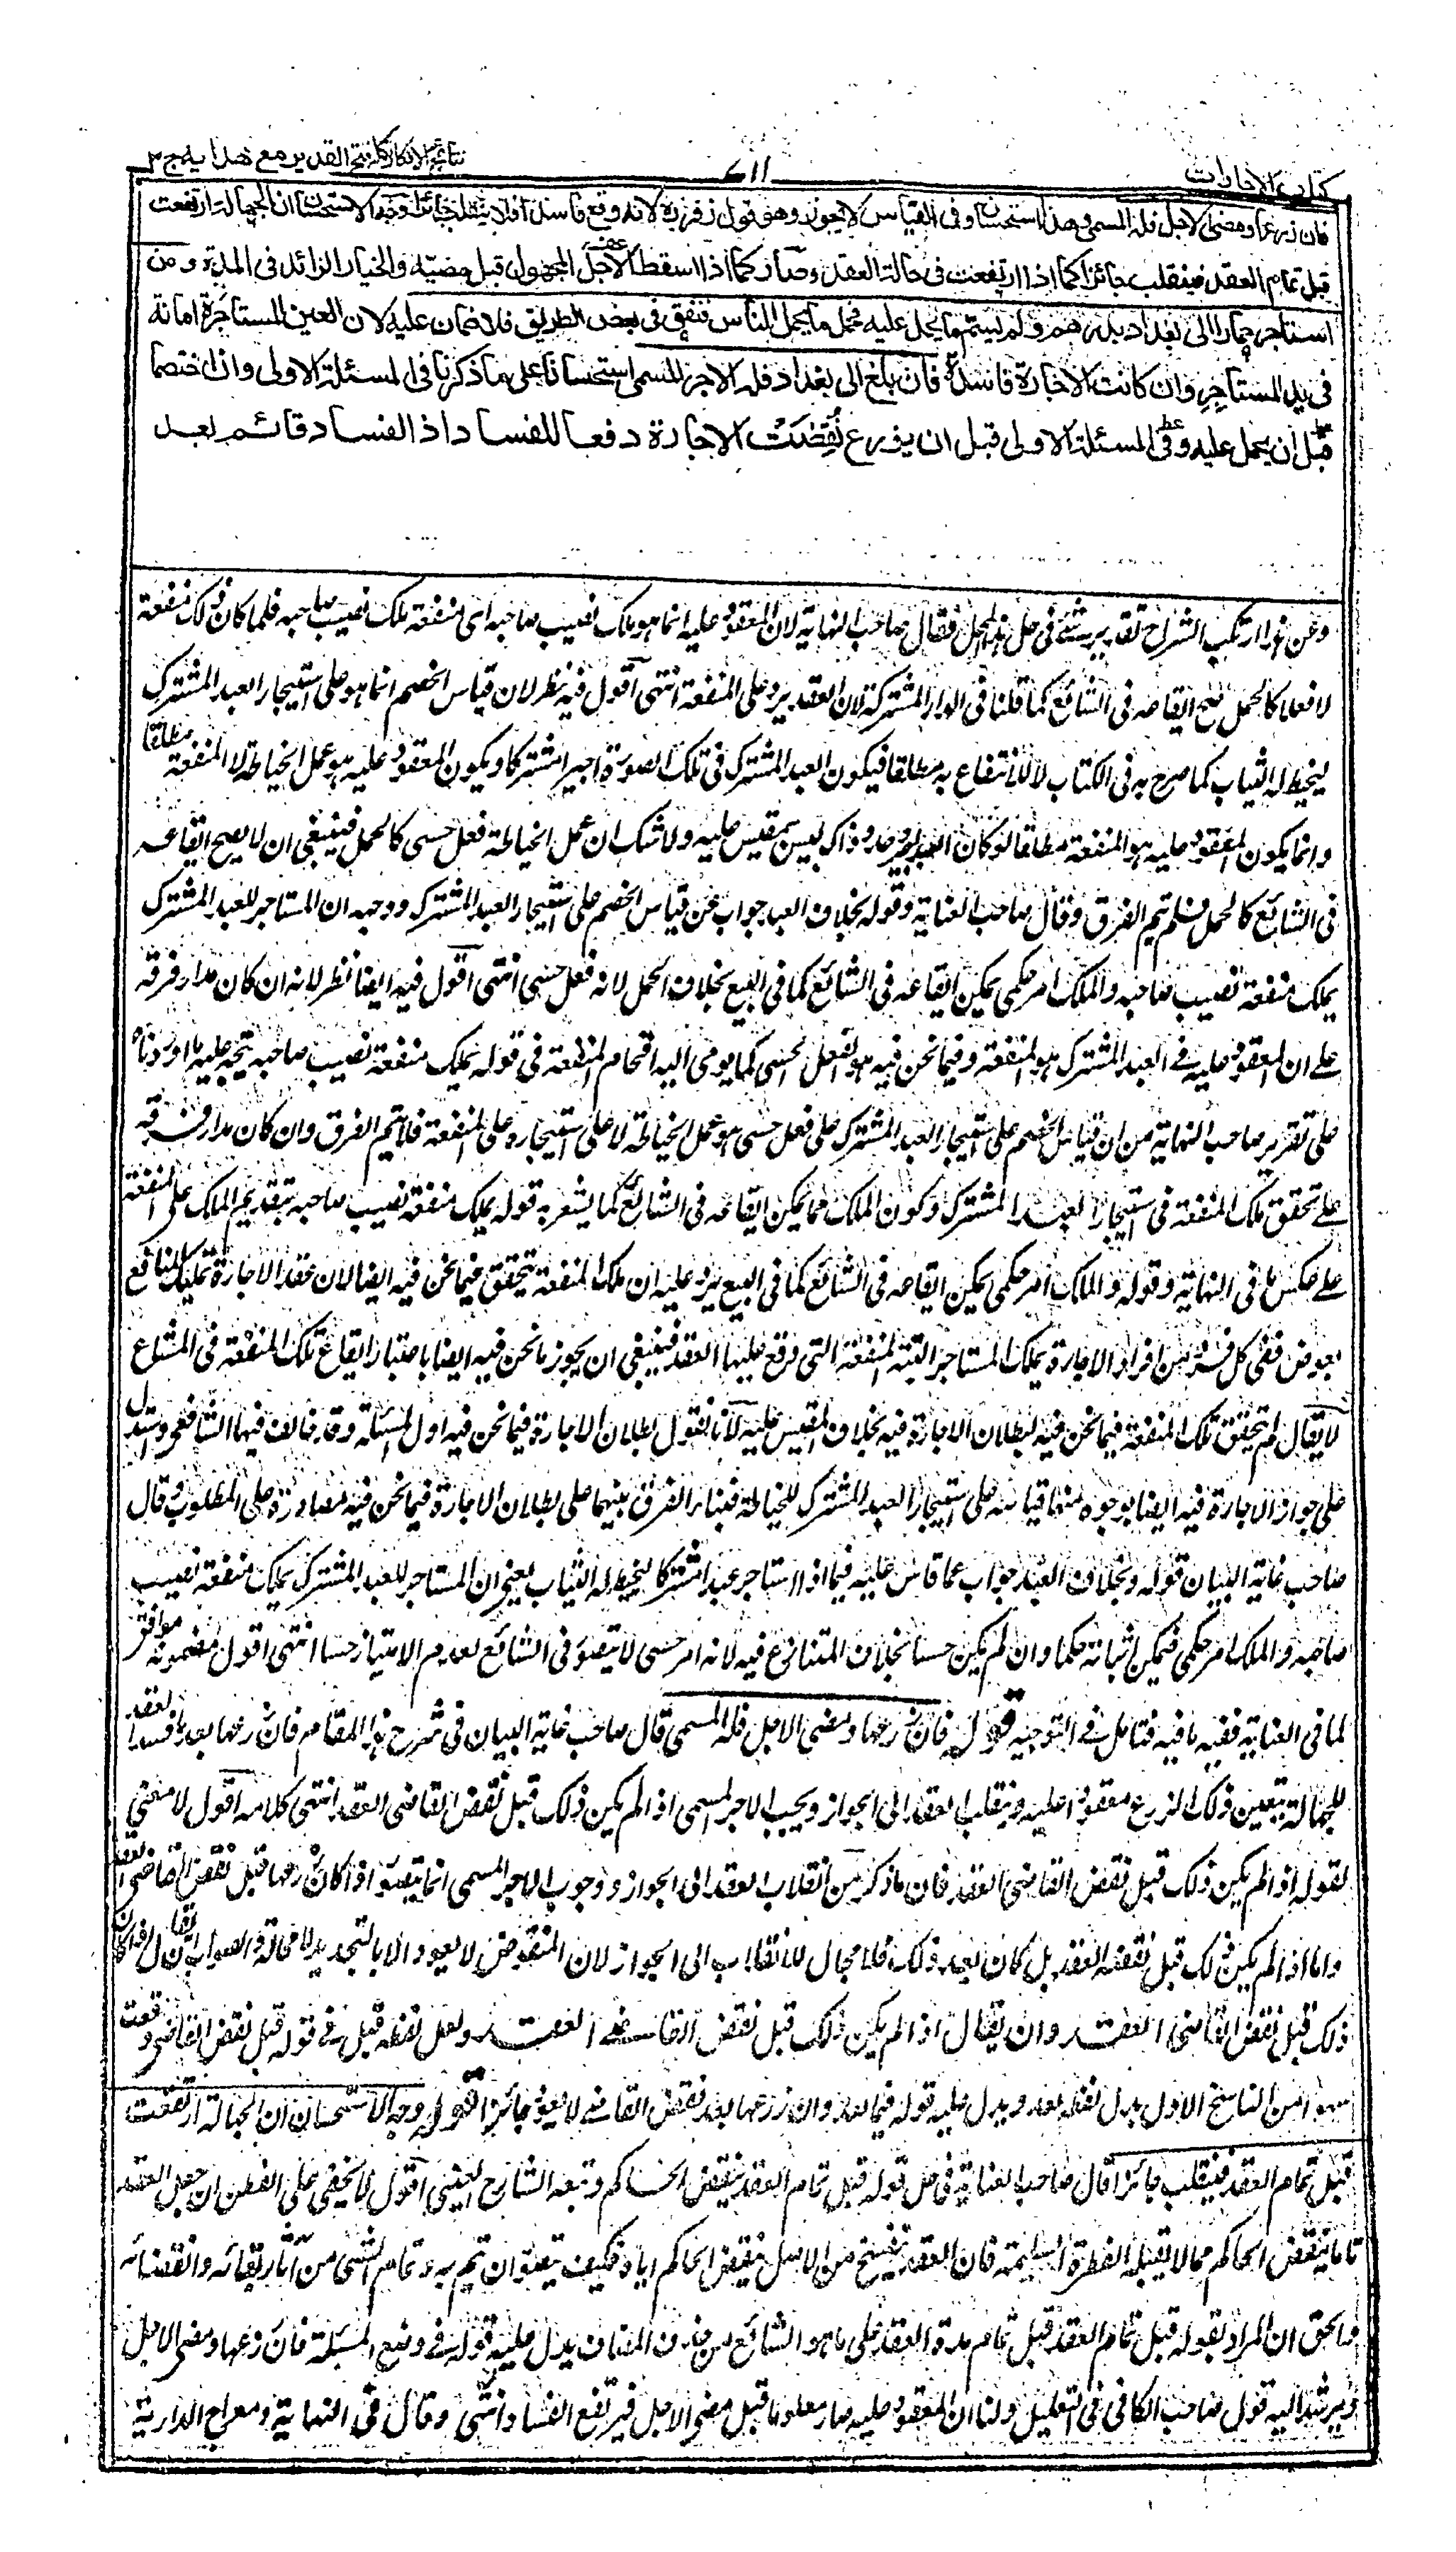 كتاب الاجارات
٧١١
نتائج الافكار تكملة فتح القدير مع هدايه ج ٣
فان زرعها ومضى الاجل فله المسمى وهذا استحسان وفى القياس لا يجوز وهو قول زفر رح لانه وقع فاسدا فلا ينقلب جائزا وجه الاستحسان ان الجهالة ارتفعت
قبل تمام العقد فينقلب جائزا كما اذا ارتفعت فى حالة العقد وصار كما اذا اسقط الاجل المجهول قبل مضيه والخيار الزائد فى المدة ومن
استاجر حمارا الى بغداد بدرهم ولم يسم ما يحمل عليه فحمل ما يحمل الناس فنفق فى بعض الطريق فلا ضمان عليه لان العين المستاجرة امانة
فى يد المستاجر وان كانت الاجارة فاسدة فان بلغ الى بغداد فله الاجر المسمى استحسانا على ما ذكرنا فى المسئلة الاولى وان اختصما
قبل ان يحمل عليه وفى المسئلة الاولى قبل ان يزرع نقضت الاجارة دفعا للفساد اذ الفساد قائم بعد
وعن هذا ارتكب الشراح تقارير شتى فى حل هذا المحل فقال صاحب النهاية لان المعقود عليه انما هو ملك نصيب صاحبه اى منفعة ملك نصيب صاحبه فلما كان ذلك منفعة
لا فعلا كالحمل صح ايقاعه فى الشائع كما قلنا فى الدار المشتركة لان العقد يرد على المنفعة انتهى اقول فيه نظر لان قياس الخصم انما هو على استيجار العبد المشترك
ليخيط له الثياب كما صرح به فى الكتاب لا للانتفاع به مطلقا فيكون العبد المشترك فى تلك الصورة اجيرا مشتركا ويكون المعقود عليه هو عمل الخياطة لا المنفعة مطلقا
وانما يكون المعقود عليه هو المنفعة مطلقا لو كان العبد اجير وحد وذاك ليس بمقيس عليه ولا شك ان عمل الخياطة فعل حسى كالحمل فينبغى ان لا يصح ايقاعه
فى الشائع كالحمل فلم تيم الفرق وقال صاحب العناية وقوله بخلاف العبد جواب عن قياس الخصم على استيجار العبد المشترك ووجهه ان المستاجر للعبد المشترك
يملك منفعة نصيب صاحبه والملك امر حكمى يمكن ايقاعه فى الشائع كما فى البيع بخلاف الحمل لانه فعل حسى انتهى اقول فيه ايضا نظر لانه ان كان مدار فرقه
على ان المعقود عليه فى العبد المشترك هو المنفعة وفيما نحن فيه هو الفعل الحسى كما يومى اليه اقحام المنفعة فى قوله يملك منفعة نصيب صاحبه يتجه عليه ما اوردناه
على تقرير صاحب النهاية من ان قياس الخصم على استيجار العبد المشترك على فعل حسى هو عمل الخياطة لا على استيجاره على المنفعة فلا يتم الفرق وان كان مدار فرقه
على تحقق ملك المنفعة فى استيجار العبد المشترك وكون الملك مما يمكن ايقاعه فى الشائع كما يشعر به قوله يملك منفعة نصيب صاحبه بتقديم الملك على المنفعة
على عكس ما فى النهاية وقوله والملك امر حكمى يمكن ايقاعه فى الشائع كما فى البيع يرد عليه ان ملك المنفعة يتحقق فيما نحن فيه ايضا لان عقد الاجارة تمليك المنافع
بعوض ففى كل فرد من افراد الاجارة يملك المستاجر البتة المنفعة التى وقع عليها العقد فينبغى ان يجوز ما نحن فيه ايضا باعتبار ايقاع تلك المنفعة فى المشاع
لا يقال لم يتحقق تلك المنفعة فيما نحن فيه لبطلان الاجارة فيه بخلاف المقيس عليه لانا نقول بطلان الاجارة فيما نحن فيه اول المسئلة وقد خالف فيها الشافعى واستدل
على جواز الاجارة فيه ايضا بوجوه منها قياسه على استيجار العبد المشترك للخياطة فبناء الفرق بينهما على بطلان الاجارة فيما نحن فيه مصادرة على المطلوب وقال
صاحب غاية البيان قوله وبخلاف العبد جواب عما قاس عليه فيما اذا استاجر عبدا مشتركا ليخيط له الثياب يعنى ان المستاجر للعبد المشترك يملك منفعة نصيب
صاحبه والملك امر حكمى فيمكن اثباته حكما وان لم يكن حسا بخلاف المتنازع فيه لانه امر حسى لا يتصور فى الشائع لعدم الامتياز حسا انتهى اقول مضمونه موافق
لما فى العناية ففيه ما فيه فتامل فى التوجيه قوله فان زرعها ومضى الاجل فله المسمى قال صاحب غاية البيان فى شرح هذا المقام فان زرعها بعد ما فسد العقد
للجهالة يتعين ذلك الزرع معقودا عليه وينقلب العقد الى الجواز ويجب الاجر المسمى اذا لم يكن ذلك قبل نقض القاضى العقد انتهى كلامه اقول لا معنى
لقوله اذا لم يكن ذلك قبل نقض القاضى العقد فان ما ذكر من انقلاب العقد الى الجواز ووجوب الاجر المسمى انما يتصور اذا كان زرعها قبل نقض القاضى العقد
واما اذا لم يكن ذلك قبل نقضه العقد بل كان بعد ذلك فلا مجال للانقلاب الى الجواز لان المنقوض لا يعود الا بالتجديد لا محالة فالصواب ان يقال اذا كان
ذلك قبل نقض القاضى العقد وان يقال اذا لم يكن ذلك قبل نقض القاضى العقد ولعل لفظة قبل فى قوله قبل نقض القاضى وقعت
سهوا من الناسخ الاول بدل لفظة بعد ويدل عليه قوله فيما بعد وان زرعها بعد نقض القاضى لا يعود جائزا قوله وجه الاستحسان ان الجهالة ارتفعت
قبل تمام العقد فينقلب جائزا قال صاحب العناية فى حل قوله قبل تمام العقد بنقض الحاكم وتبعه الشارح العينى اقول لا يخفى على الفطن ان جعل العقد
تاما بنقض الحاكم مما لا يقبله الفطرة السليمة فان العقد ينفسخ من الاصل بنقض الحاكم اياه فكيف يتصور ان يتم به وتمام الشئ من آثار بقائه وانقضائه
والحق ان المراد بقوله قبل تمام العقد قبل تمام مدة العقد على ما هو الشائع من حذف المضاف يدل عليه قوله فى وضع المسئلة فان زرعها ومضى الاجل
ويرشد اليه قول صاحب الكافى فى التعليل ولنا ان المعقود عليه صار معلوما قبل مضى الاجل فيرتفع الفساد انتهى وقال فى النهاية ومعراج الدراية